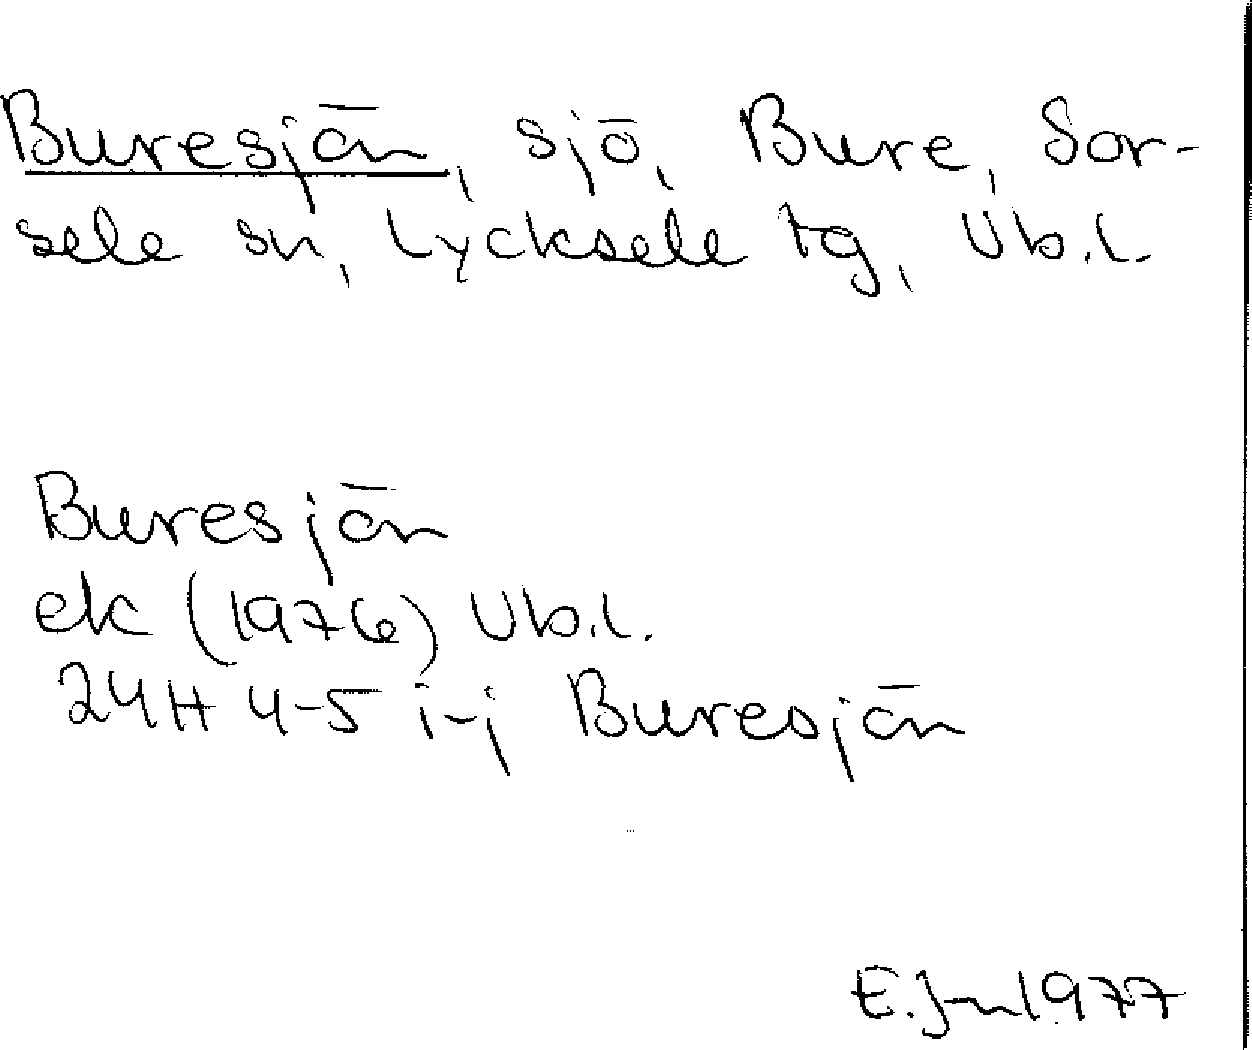 Buresjön, sjö, Bure, Sor-
sele sn, Lycksele tg, Vb.l.
Buresjön
ek (1976) Vb.l.
24H 4-5 i-j Buresjön
E.Jn 1977